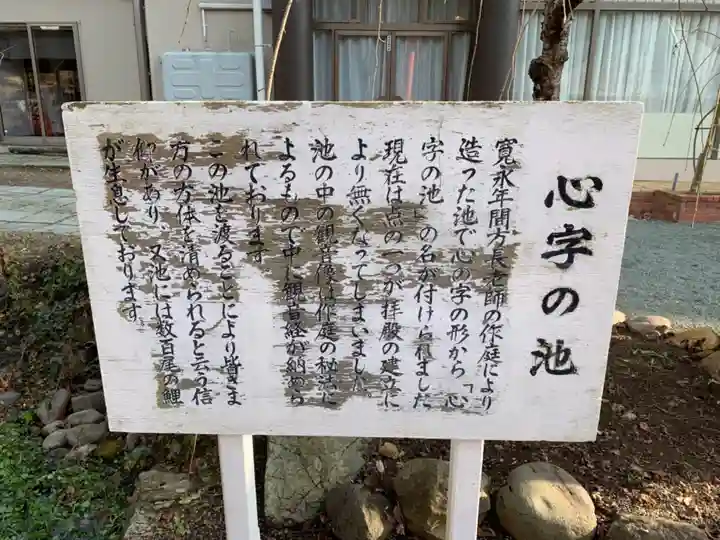 心字の池
寛永年間方長老師の作庭により
造った池で心の字の形から「心
字の池」の名が付けられました
現在は点の一つが拝殿の建立に
より無くなってしまいました。
池の中の観音像は作庭の秘法に
よるもので中に観音経が納めら
れております
この池を渡ることにより皆さま
方の方体を清められると云う信
仰があり、又池には数百尾の鯉
が生息しております。